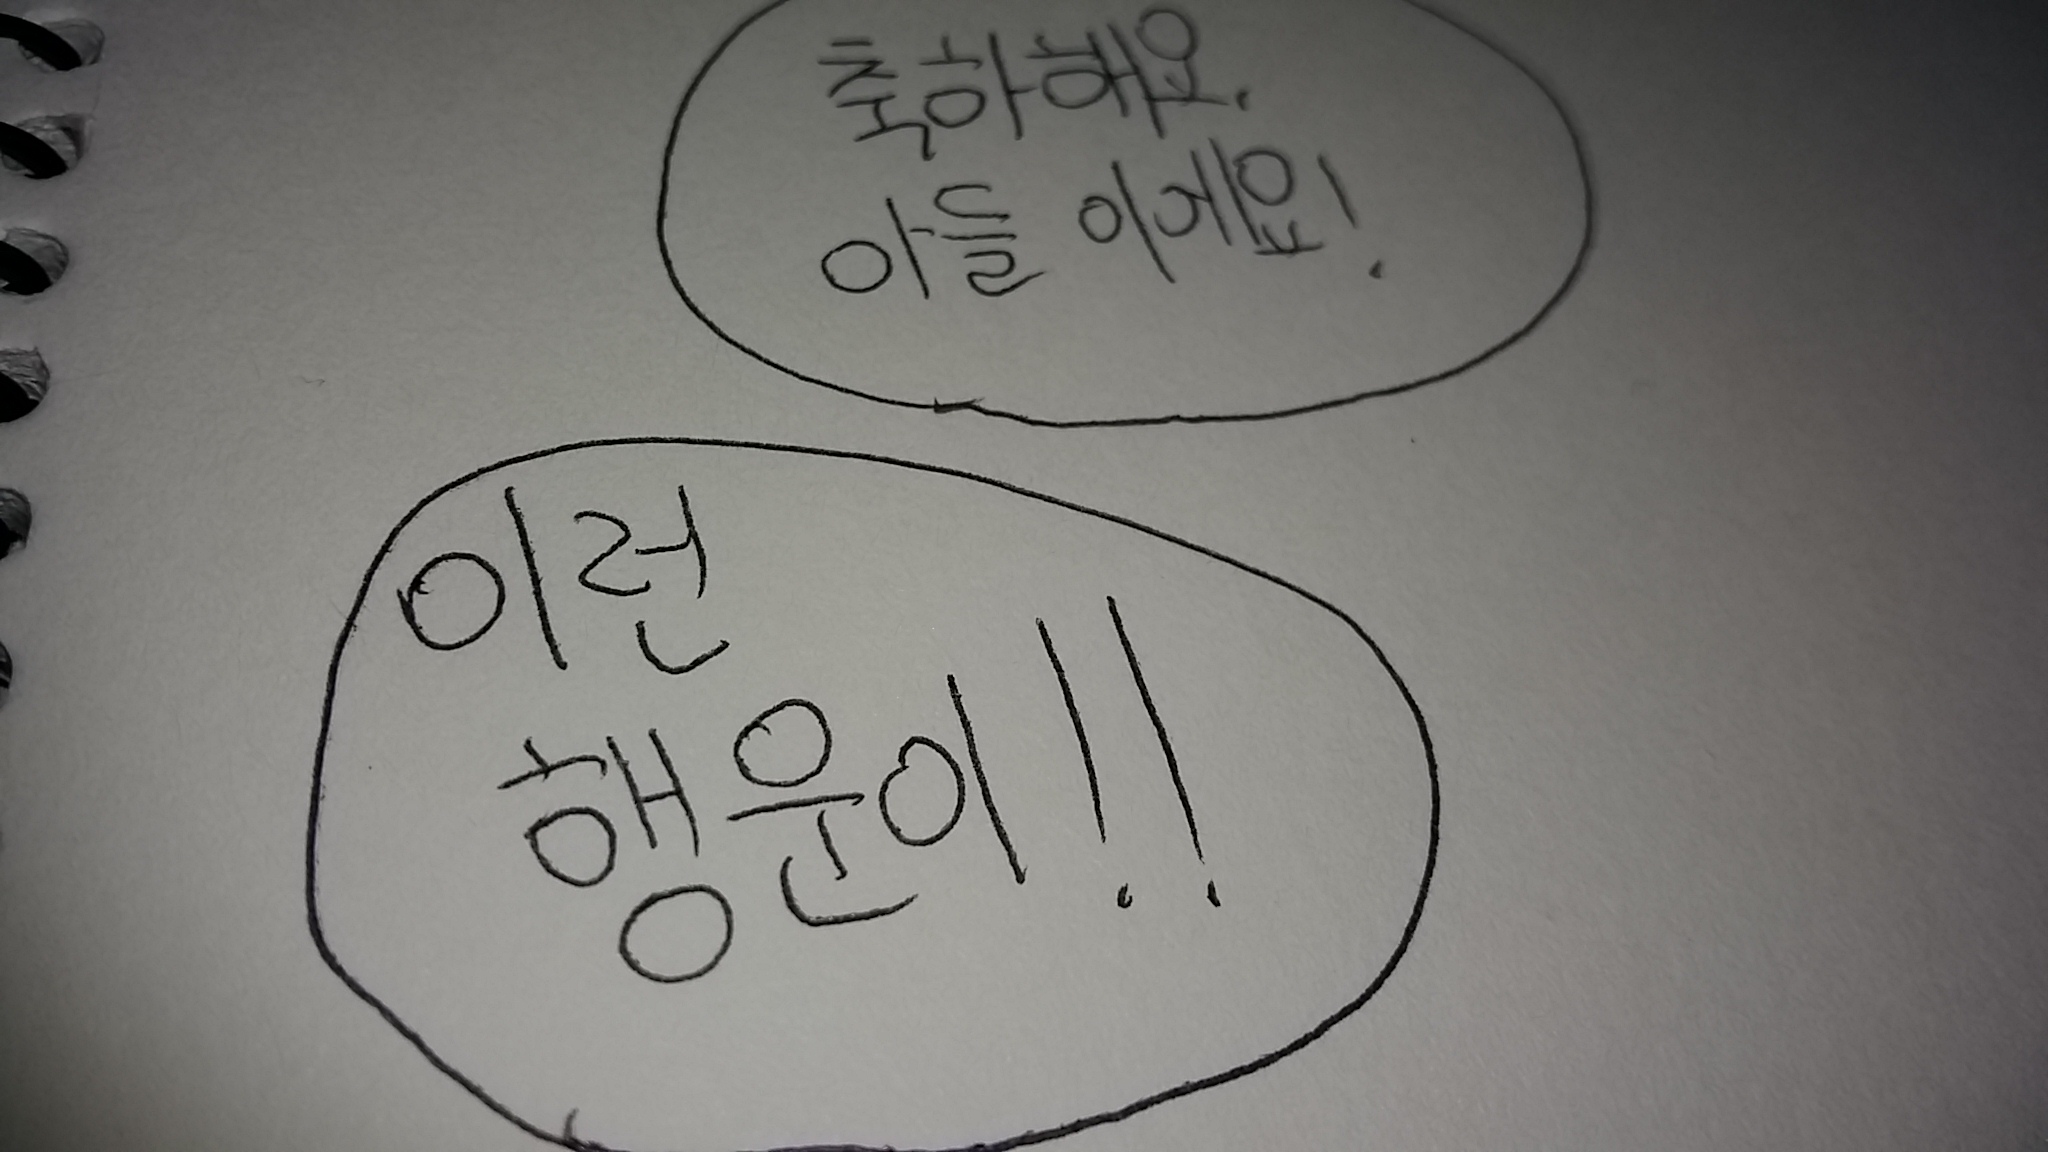 축하해요.
아들 이에요!
이런
행운이!!